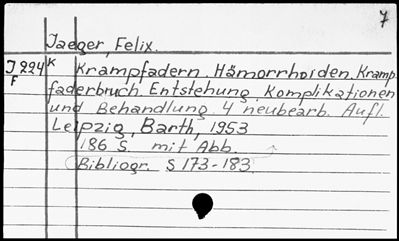 7
Jaeger, Felix.
J 224 K Krampfadern. Hämorrhoiden. Kramp
F faderbruch. Entstehung, Komplikationen
und Behandlung 4 neubearb. Aufl.
Leipzig, Barth, 1953
186 S. mit Abb.
Bibliogr. S 173-183.